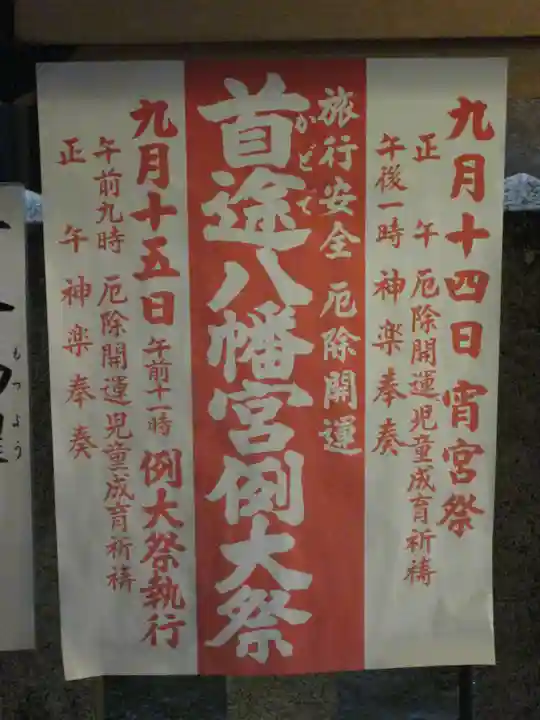 九月十四日 宵宮祭
正午 厄除開運児童成育祈祷
午後一時 神楽奉奏
旅行安全 厄除開運
かどで
首途八幡宮例大祭
九月十五日 午前十一時 例大祭執行
午前九時 厄除開運児童成育祈祷
正午 神楽奉奏
もつよう